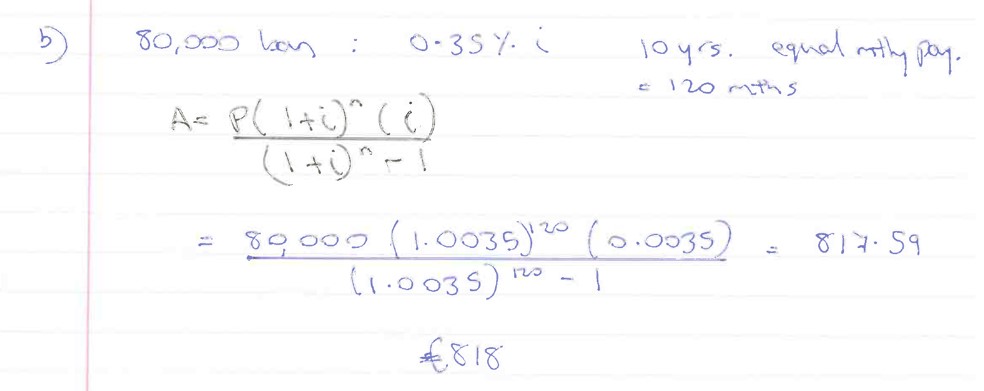 b) 80,000 loan : 0.35% i 10 yrs. equal mthly pay.
= 120 mths
A = P(1+i)^n (i)
(1+i)^n - 1
= 80,000 (1.0035)^120 (0.0035) = 817.59
(1.0035)^120 - 1
€818